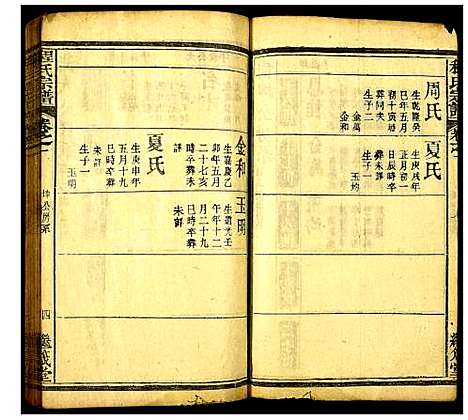 程氏宗譜
卷之
周氏
生乾隆癸
巳年五月
初十寅時
葬同夫
生子二
金萬
金和
夏氏
生庚戌年
正月初一
日辰時卒
葬未詳
生子一
玉均
金和
生嘉慶乙
卯年五月
二十七亥
時卒葬未
詳
夏氏
生庚申年
五月十九
巳時卒葬
未詳
生子一
玉明
玉明
生道光壬
午年十二
月二十九
巳時卒葬
未詳
程氏宗譜
卷之
公房系
四
義堂